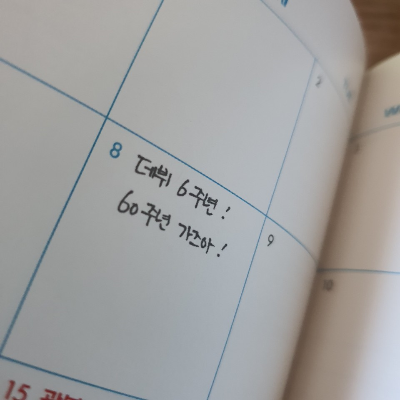 2
8
데뷔 6주년!
60주년 가즈아!
9
10
15